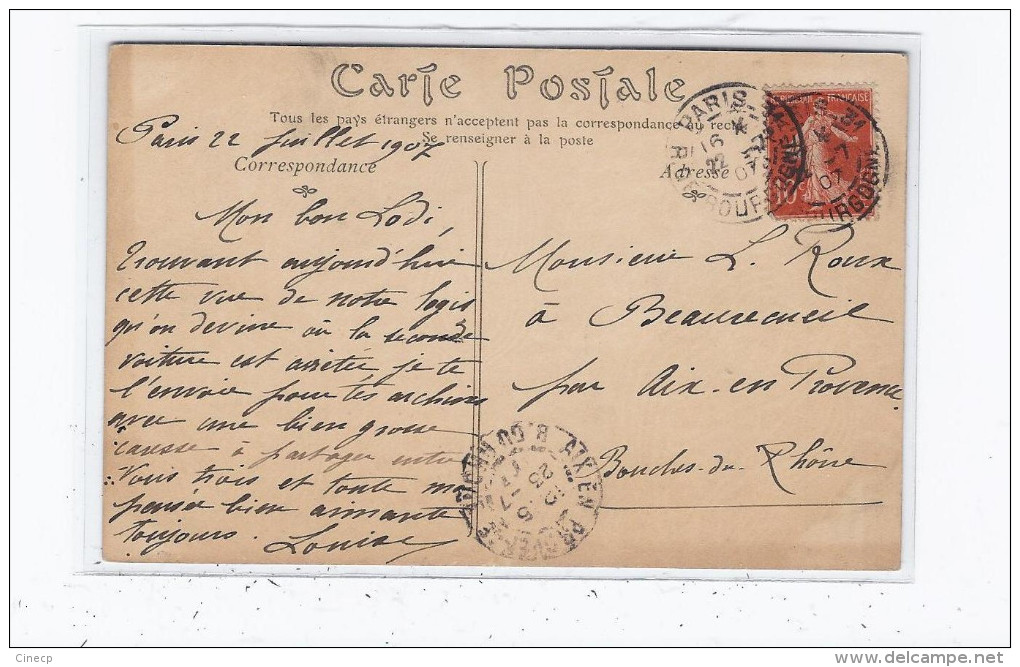 Carte Postale
Tous les pays étrangers n'acceptent pas la correspondance au recto
Se renseigner à la poste
Paris 22 Juillet 1907
Correspondance
Adresse
Mon bon Lodi,
Trouvant aujourd'hui
cette vue de notre logis
qu'on devine où la seconde
voiture est arrêtée, je te
l'envoie pour tes archives
avec une bien grosse
caresse à partager entre
Vous trois et toute ma
pensée bien aimante
toujours. Louise
Monsieur L. Roux
à Beaurecueil
par Aix-en-Provence
Bouches-du-Rhône
PARIS
16
22
07
R.
BOURGOGNE
FRANÇAISE
10c
7
07
BOURGOGNE
AIX EN PROVENCE
B. DU RHONE
23
7
Cinecp
http://www.delcampe.net